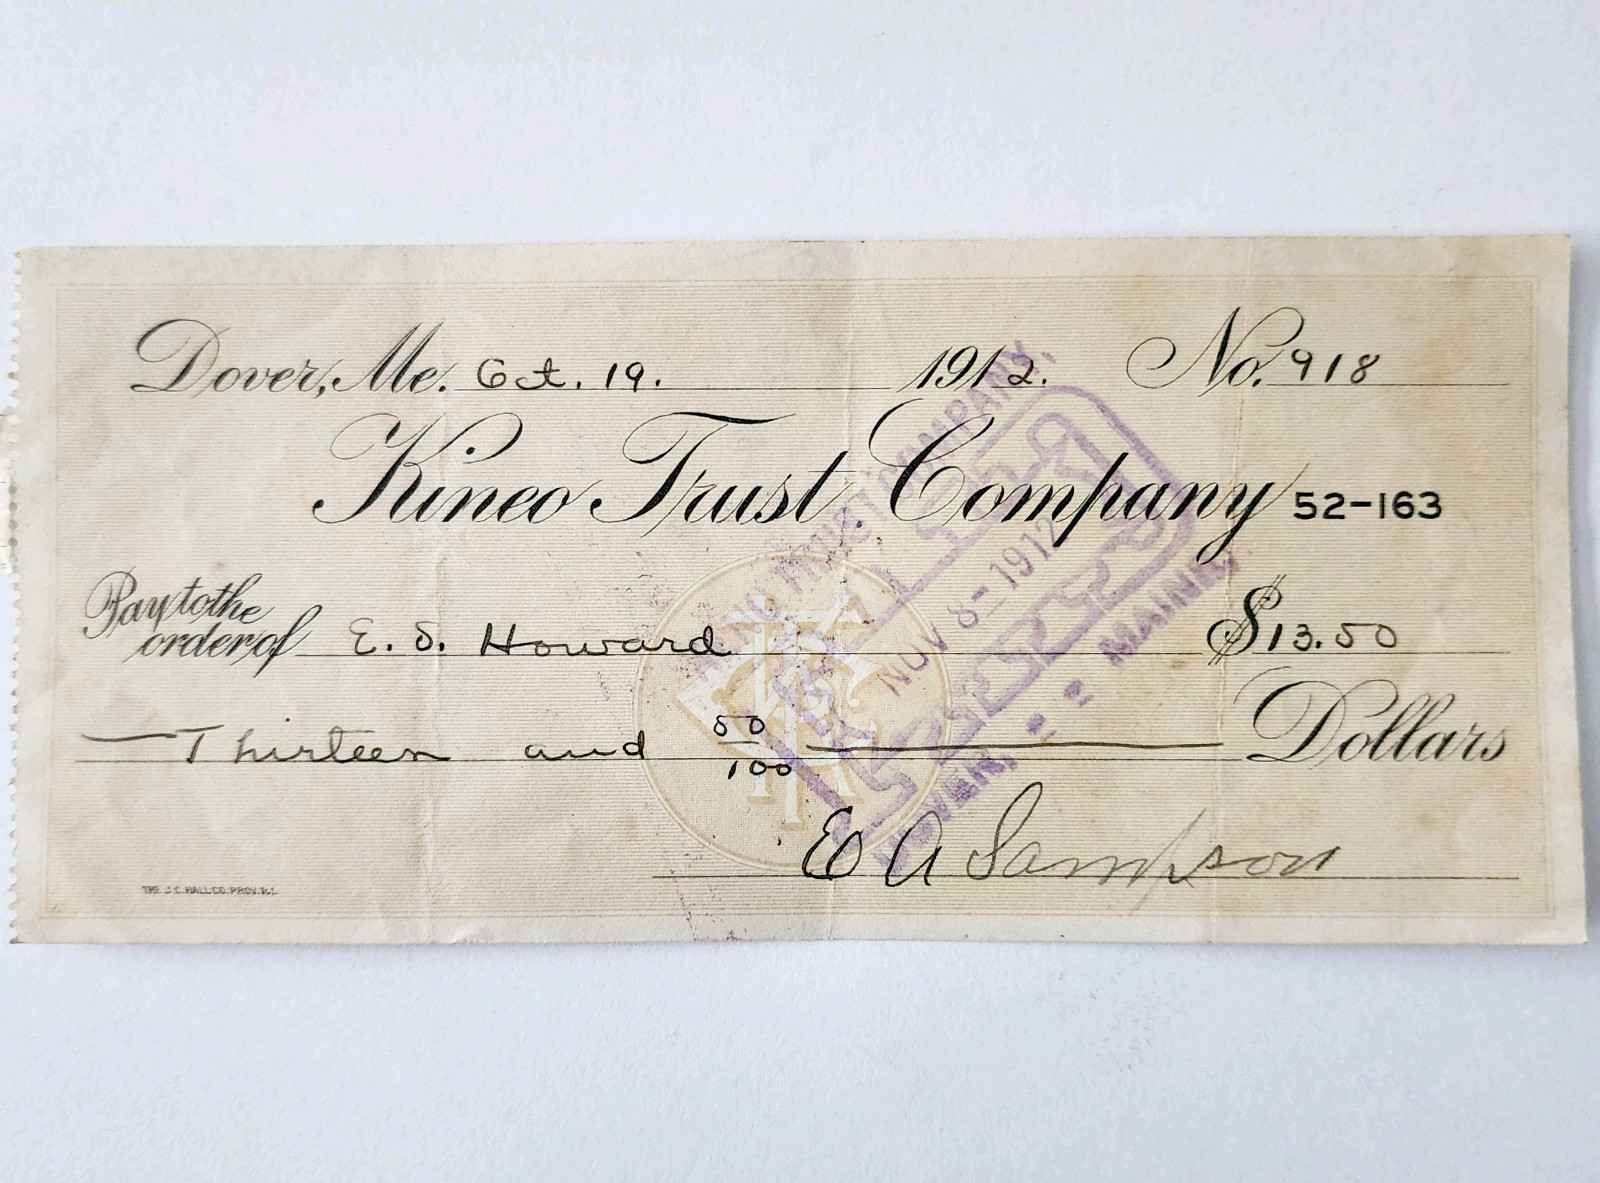 Dover, Me. Oct. 19. 1912. No. 918
Kineo Trust Company 52-163
Pay to the order of E. S. Howard $13.50
Thirteen and 50/100 Dollars
E A Sampson
THE J.C. HALL CO. PROV. R.I.
KINEO TRUST COMPANY,
PAID
NOV 8-1912
DOVER, MAINE.
KTC